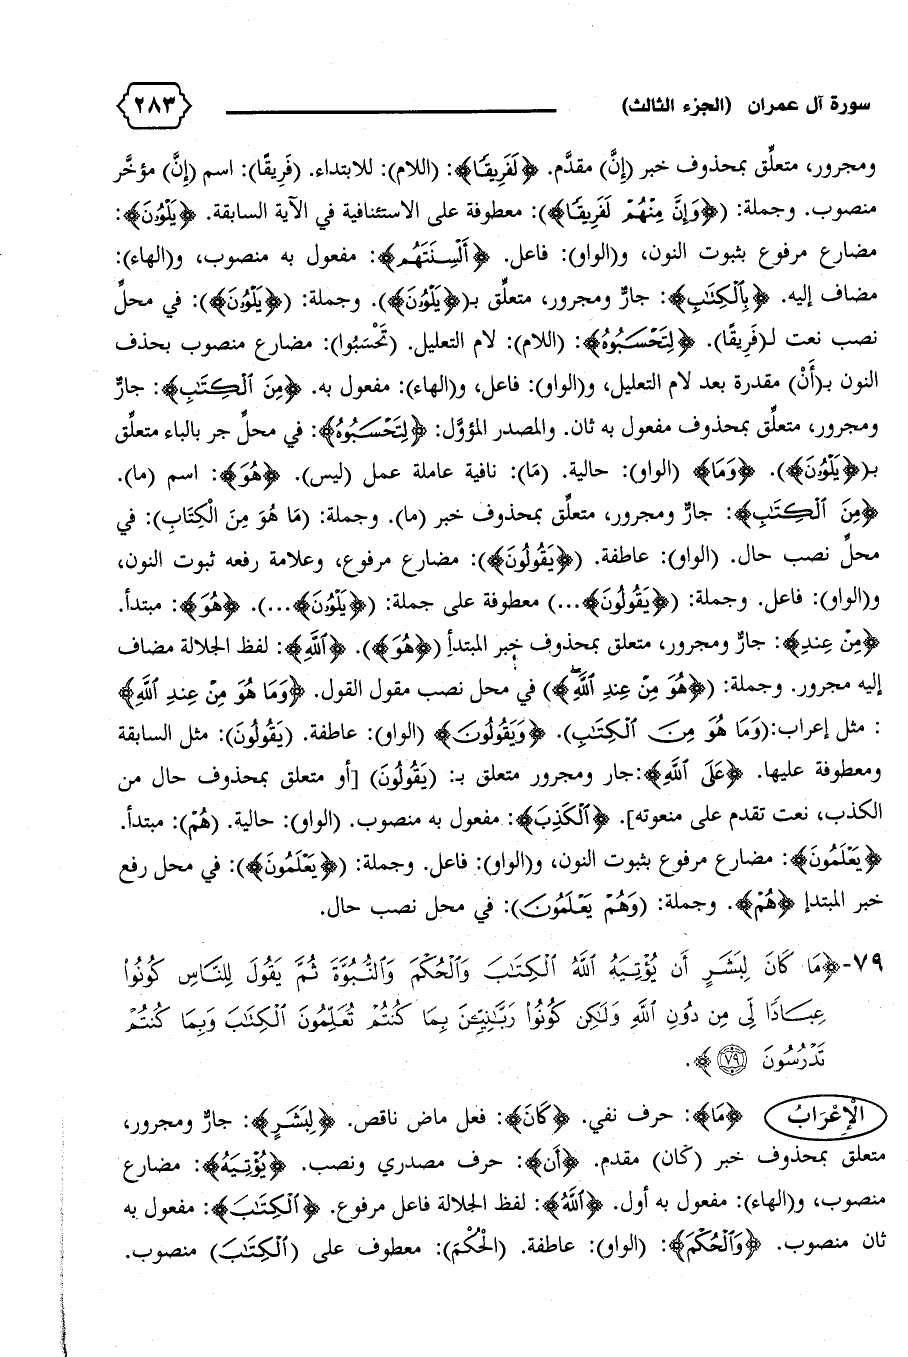 سورة آل عمران (الجزء الثالث) ٢٨٣
ومجرور، متعلِّق بمحذوف خبر (إنَّ) مقدَّم. ﴿لَفَرِيقًا﴾: (اللام): للابتداء. (فَرِيقًا): اسم (إنَّ) مؤخَّر
منصوب. وجملة: (﴿وَإِنَّ مِنْهُمْ لَفَرِيقًا﴾): معطوفة على الاستئنافية في الآية السابقة. ﴿يَلْوُۥنَ﴾:
مضارع مرفوع بثبوت النون، و(الواو): فاعل. ﴿أَلْسِنَتَهُم﴾: مفعول به منصوب، و(الهاء):
مضاف إليه. ﴿بِٱلْكِتَٰبِ﴾: جارٌّ ومجرور، متعلِّق بـ(﴿يَلْوُۥنَ﴾). وجملة: (﴿يَلْوُۥنَ﴾): في محلِّ
نصب نعت لـ(فَرِيقًا). ﴿لِتَحْسَبُوهُ﴾: (اللام): لام التعليل. (تَحْسَبُوا): مضارع منصوب بحذف
النون بـ(أَنْ) مقدرة بعد لام التعليل، و(الواو): فاعل، و(الهاء): مفعول به. ﴿مِنَ ٱلْكِتَٰبِ﴾: جارٌّ
ومجرور، متعلِّق بمحذوف مفعول به ثان. والمصدر المؤوَّل: ﴿لِتَحْسَبُوهُ﴾: في محلِّ جر بالباء متعلِّق
بـ(﴿يَلْوُۥنَ﴾). ﴿وَمَا﴾ (الواو): حالية. (مَا): نافية عاملة عمل (ليس). ﴿هُوَ﴾: اسم (ما).
﴿مِنَ ٱلْكِتَٰبِ﴾: جارٌّ ومجرور، متعلِّق بمحذوف خبر (ما). وجملة: (مَا هُوَ مِنَ الْكِتَابِ): في
محلِّ نصب حال. (الواو): عاطفة. (﴿يَقُولُونَ﴾): مضارع مرفوع، وعلامة رفعه ثبوت النون،
و(الواو): فاعل. وجملة: (﴿يَقُولُونَ﴾...) معطوفة على جملة: (﴿يَلْوُۥنَ﴾...). ﴿هُوَ﴾: مبتدأ.
﴿مِنْ عِندِ﴾: جارٌّ ومجرور، متعلق بمحذوف خبر المبتدأ (﴿هُوَ﴾). ﴿ٱللَّهِ﴾: لفظ الجلالة مضاف
إليه مجرور. وجملة: (﴿هُوَ مِنْ عِندِ ٱللَّهِ﴾) في محل نصب مقول القول. ﴿وَمَا هُوَ مِنْ عِندِ ٱللَّهِ﴾
: مثل إعراب:(وَمَا هُوَ مِنَ ٱلْكِتَٰبِ). ﴿وَيَقُولُونَ﴾ (الواو): عاطفة. (يَقُولُونَ): مثل السابقة
ومعطوفة عليها. ﴿عَلَى ٱللَّهِ﴾:جار ومجرور متعلق بـ: (يَقُولُونَ) [أو متعلق بمحذوف حال من
الكذب، نعت تقدم على منعوته]. ﴿ٱلْكَذِبَ﴾: مفعول به منصوب. (الواو): حالية. (هُمْ): مبتدأ.
﴿يَعْلَمُونَ﴾: مضارع مرفوع بثبوت النون، و(الواو): فاعل. وجملة: (﴿يَعْلَمُونَ﴾): في محل رفع
خبر المبتدإ ﴿هُمْ﴾. وجملة: (وَهُمْ يَعْلَمُونَ): في محل نصب حال.
٧٩-﴿مَا كَانَ لِبَشَرٍ أَن يُؤْتِيَهُ ٱللَّهُ ٱلْكِتَٰبَ وَٱلْحُكْمَ وَٱلنُّبُوَّةَ ثُمَّ يَقُولَ لِلنَّاسِ كُونُوا۟
عِبَادًا لِّى مِن دُونِ ٱللَّهِ وَلَٰكِن كُونُوا۟ رَبَّٰنِيِّـۧنَ بِمَا كُنتُمْ تُعَلِّمُونَ ٱلْكِتَٰبَ وَبِمَا كُنتُمْ
تَدْرُسُونَ ٧٩﴾.
الْإِعْرَابُ ﴿مَا﴾: حرف نفي. ﴿كَانَ﴾: فعل ماض ناقص. ﴿لِبَشَرٍ﴾: جارٌّ ومجرور،
متعلق بمحذوف خبر (كان) مقدم. ﴿أَن﴾: حرف مصدري ونصب. ﴿يُؤْتِيَهُ﴾: مضارع
منصوب، و(الهاء): مفعول به أول. ﴿ٱللَّهُ﴾: لفظ الجلالة فاعل مرفوع. ﴿ٱلْكِتَٰبَ﴾: مفعول به
ثان منصوب. ﴿وَٱلْحُكْمَ﴾: (الواو): عاطفة. (الْحُكْمَ): معطوف على (ٱلْكِتَٰبَ) منصوب.